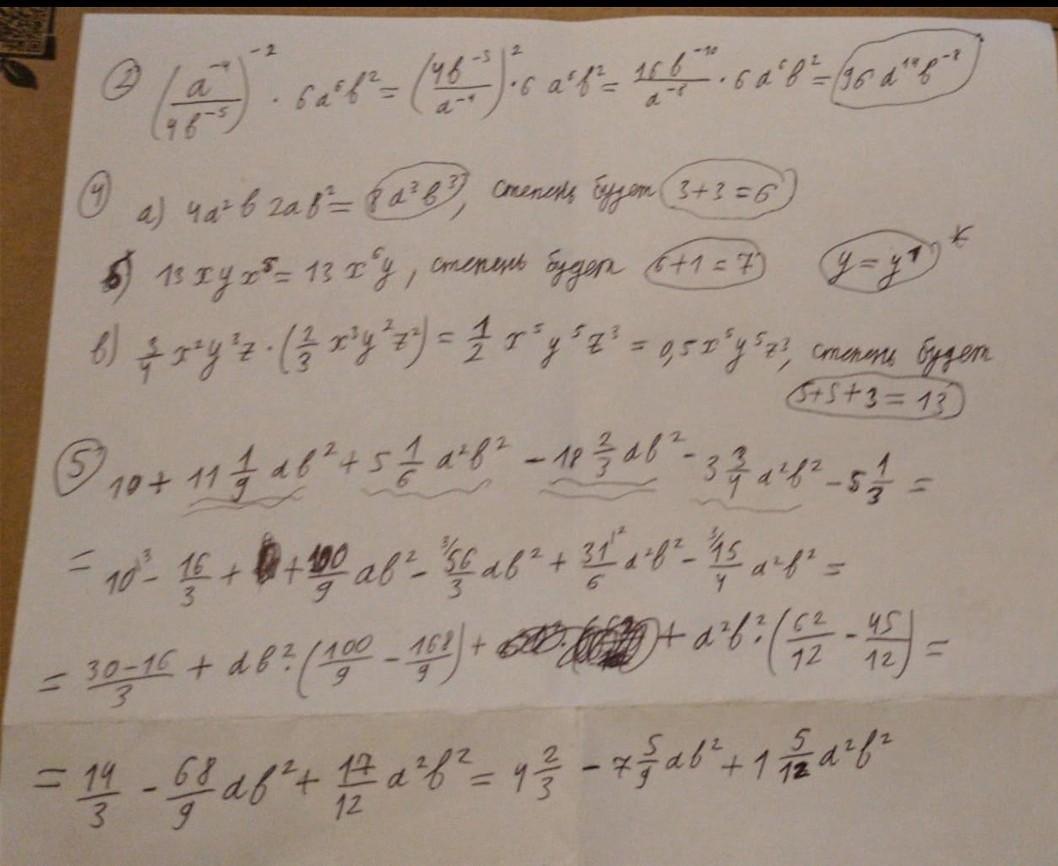 ② (a⁻⁴/4b⁻⁵)⁻² · 6a⁶b² = (4b⁻⁵/a⁻⁴)² · 6a⁶b² = 16b⁻¹⁰/a⁻⁸ · 6a⁶b² = 96a¹⁴b⁻⁸
④ а) 4a²b 2ab² = 8a³b³, степень будет 3+3=6
б) 13xyx⁵ = 13x⁶y, степень будет 6+1=7 y=y¹ *
в) 3/4 x²y³z · (2/3 x³y²z²) = 1/2 x⁵y⁵z³ = 0,5x⁵y⁵z³, степень будет
5+5+3=13
⑤ 10 + 11 1/9 ab² + 5 1/6 a²b² - 18 2/3 ab² - 3 3/4 a²b² - 5 1/3 =
= 10 ³⁾ - 16/3 + + 100/9 ab² - ³⁾ 56/3 ab² + 31/6 ²⁾ a²b² - ³⁾ 15/4 a²b² =
= 30-16/3 + ab² · (100/9 - 168/9) + + a²b² · (62/12 - 45/12) =
= 14/3 - 68/9 ab² + 17/12 a²b² = 4 2/3 - 7 5/9 ab² + 1 5/12 a²b²